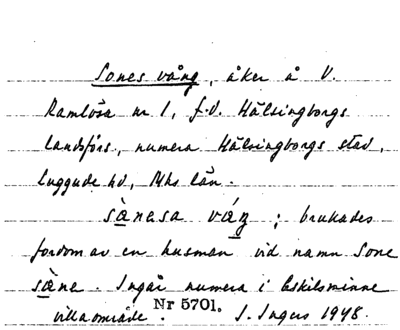 Sones vång, åker å V.
Ramlösa nr 1, f.d. Hälsingborgs
landsförs., numera Hälsingborgs stad,
Luggude hd, Mhs län.
sànasa váŋ; brukades
fordom av en husman vid namn Sone
sàne. Ingår numera i Eskilsminne
villaområde. J. Ingers 1948.
Nr 5701.